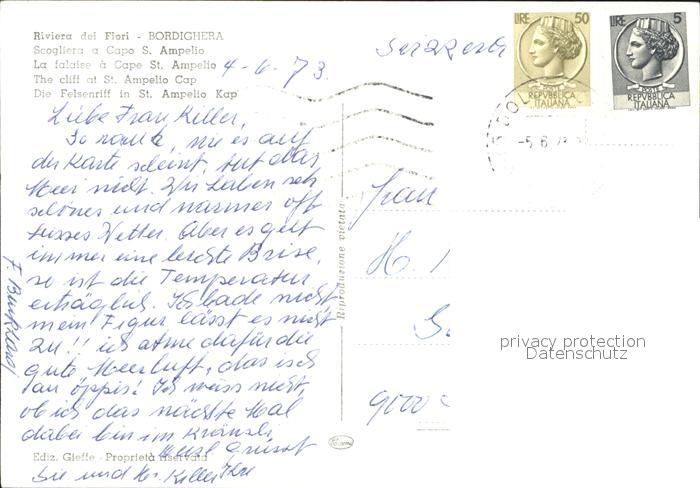 Riviera dei Fiori - BORDIGHERA
Scogliera a Capo S. Ampelio
La falaise à Cape St. Ampelio
The cliff at St. Ampelio Cap
Die Felsenriff in St. Ampelio Kap
4-6-73.
Svizzera
LIRE 50
POSTE
REPVBBLICA
ITALIANA
LIRE 5
POSTE
REPVBBLICA
ITALIANA
-5.6.73
Liebe Frau Keller,
So rauh, wie es auf
der Karte scheint, tut das
Meer nicht. Wir haben sehr
schönes und warmes oft
heisses Wetter. Aber es geht
immer eine leichte Brise,
so ist die Temperatur
erträglich. Ich bade nicht
mein Figur lässt es nicht
zu!! ich atme dafür die
gute Meerluft, das isch
au öppis! Ich weiss nicht,
ob ich das nächste Mal
dabei bin im Kränzli,
grüsst
Sie und Hr. Keller Ihre
Frau
H.
9000
Riproduzione vietata
privacy protection
Datenschutz
Ediz. Gieffe - Proprietà riservata